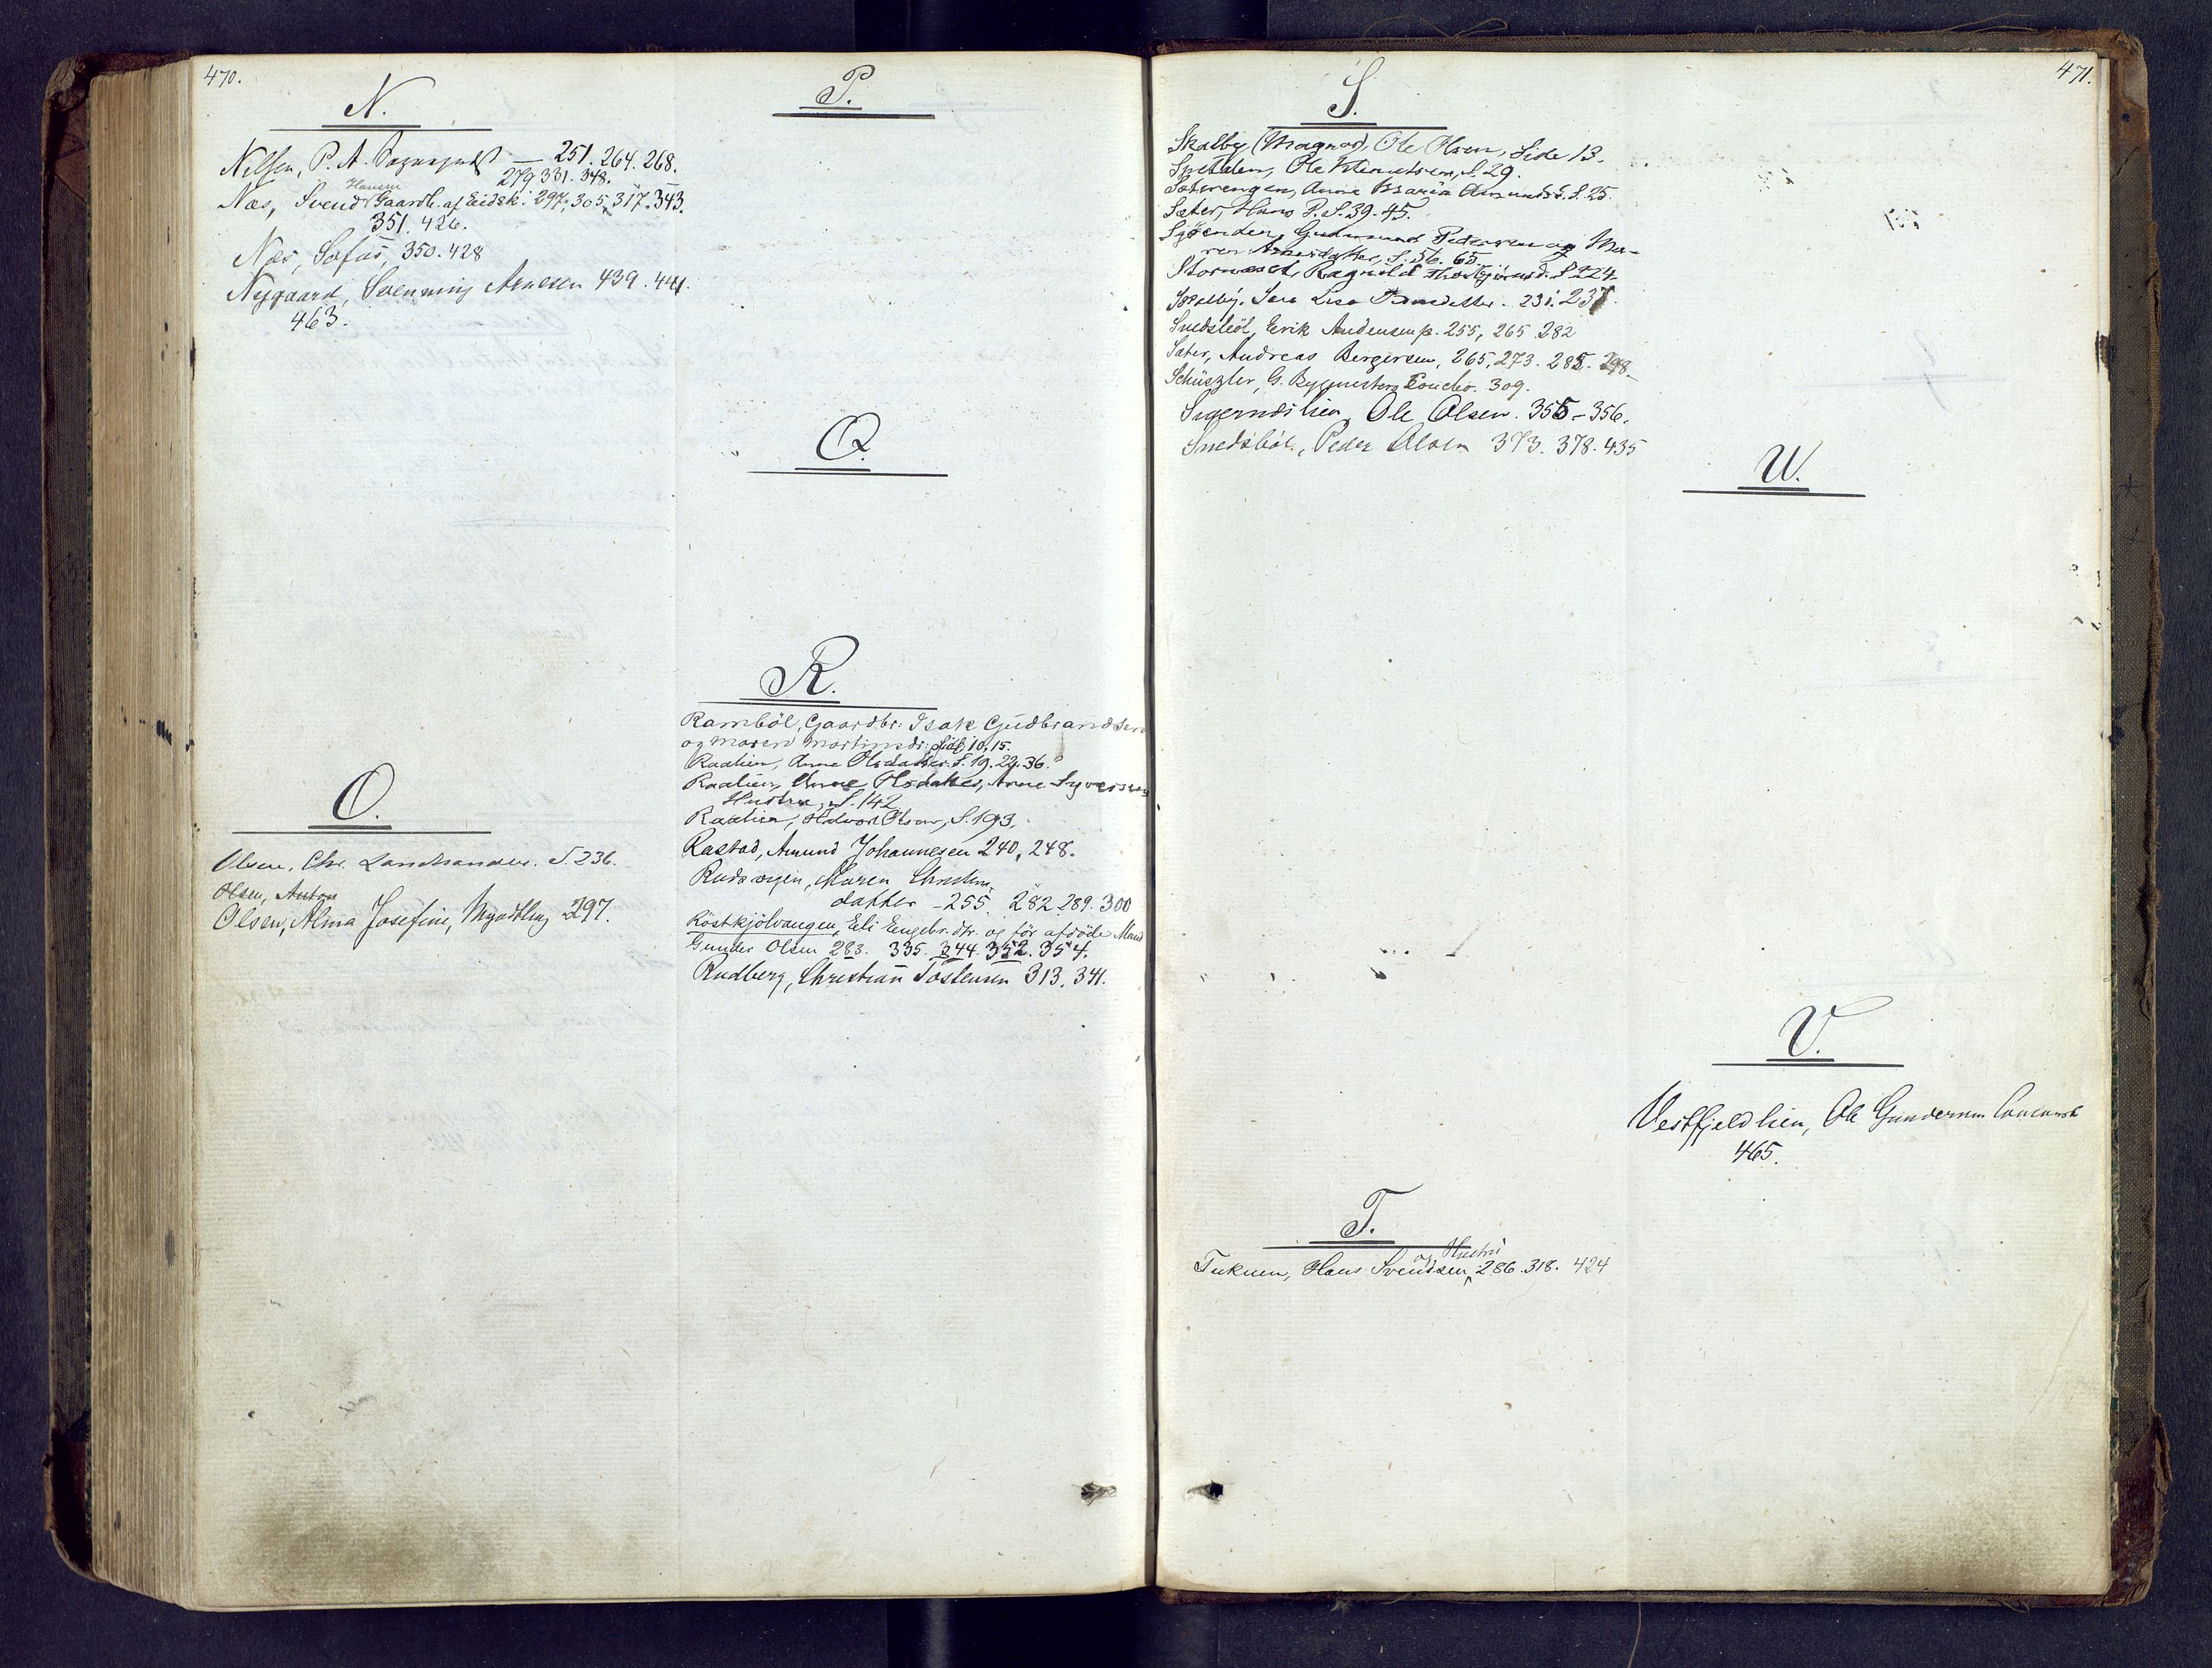 470.
N.
Nilsen, P. A. — 251. 264. 268.
279 331. 348.
Næs, Svend Hansen Gaardb. af Eidsk. 297, 305, 317. 343.
351. 426.
Næs, Sofus, 350. 428
Nygaard, Svenning Arnesen 439. 441.
463.
O.
Olsen, Chr. Landhandler. S. 236.
Olsen, Anton
Olsen, Alma Josefine, Myndtling 297.
P.
Q.
R.
Ramböl, Gaardbr: Isak Gudbrandsen
og Maren Martinsdr: Side 10, 15.
Raalien, Anne Olsdatter. S. 19. 22. 36.
Raalien, Anne Olsdatter, Arne Syversens
Hustru, S. 142
Raalien, Halvor Olsen, S. 193.
Rastad, Amund Johannesen 240, 248.
Rudsvegen, Maren Christens
datter - 255. 282 289. 300
Röstkjölvangen, Eli Engebr. dtr. og för afdöde Mand
Gunder Olsen 283. 335. 344. 352. 354.
Rudberg, Christian Tostensen 313. 341.
471.
S.
Skalby (Magnor), Ole Olsen, Side 13.
Spetalen, Ole S. 29.
Sæterengen, Anne Maria Amundsd. S. 25.
Sæter, Hans P. S. 39. 45.
Gudmund Pedersen og Ma-
ren S. 56. 65.
Stornæset, Ragnild Thorbjörnsd. S. 224.
Skalby, Lisa 231. 237
Snedsböl, Erik Andersen p. 255, 265 282
Sæter, Andreas Bergersen, 265, 273. 285. 298.
Schüszler, G. Bygmester Concbo. 309.
Sigernæslien, Ole Olsen. 355 - 356.
Snedsböl, Peder Olsen 373. 378. 435
T.
Tuknen, Hans Svendsen og Hustru 286. 318. 424
U.
V.
Vestfjeldlien, Ole Gundersen Concursb
465.